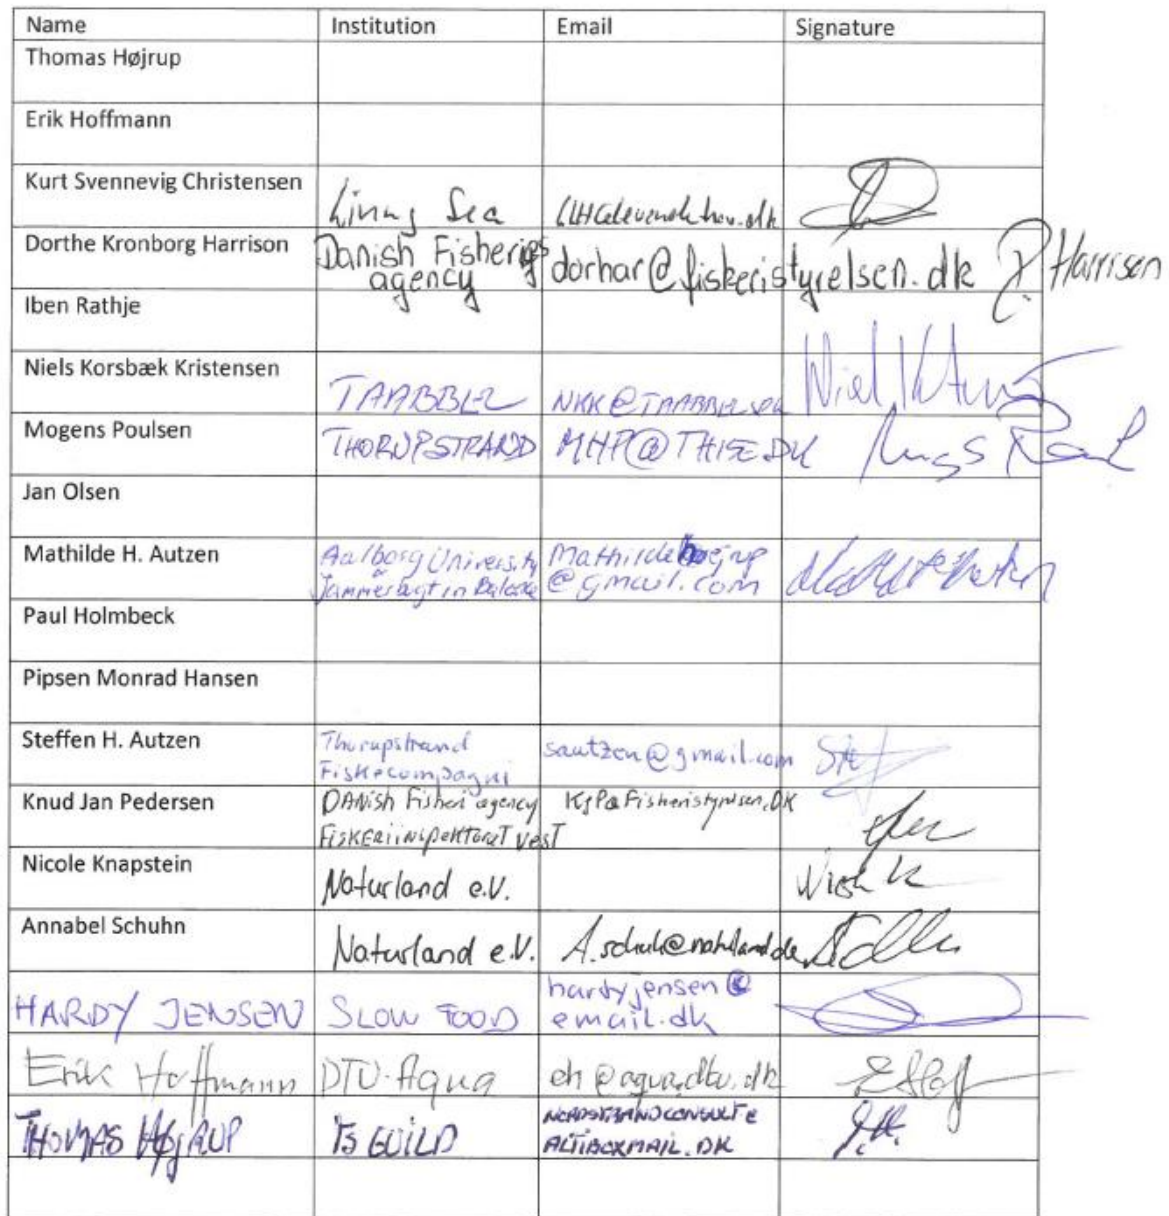 Name Institution Email Signature
Thomas Højrup
Erik Hoffmann
Kurt Svennevig Christensen
Living Sea
Dorthe Kronborg Harrison Danish Fisheries dorhar@fiskeristyrelsen.dk D. Harrison
agency
Iben Rathje
Niels Korsbæk Kristensen
TAABBEL
Mogens Poulsen THORUPSTRAND MHP@THISE.DK
Jan Olsen
Mathilde H. Autzen Aalborg University Mathildehoejrup
@gmail.com
Paul Holmbeck
Pipsen Monrad Hansen
Steffen H. Autzen Thorupstrand sautzen@gmail.com
Fiskecompagni
Knud Jan Pedersen DANish Fisheri agency
FISKERiiNSpeKToraT vesT
Nicole Knapstein
Naturland e.V.
Annabel Schuhn
Naturland e.V.
HARDY JENSEN SLOW FOOD hardyjensen@
email.dk
Erik Hoffmann DTU-Aqua eh@aqua.dtu.dk
THOMAS HØjRUP TS GUILD
ALTIBOXMAIL.DK